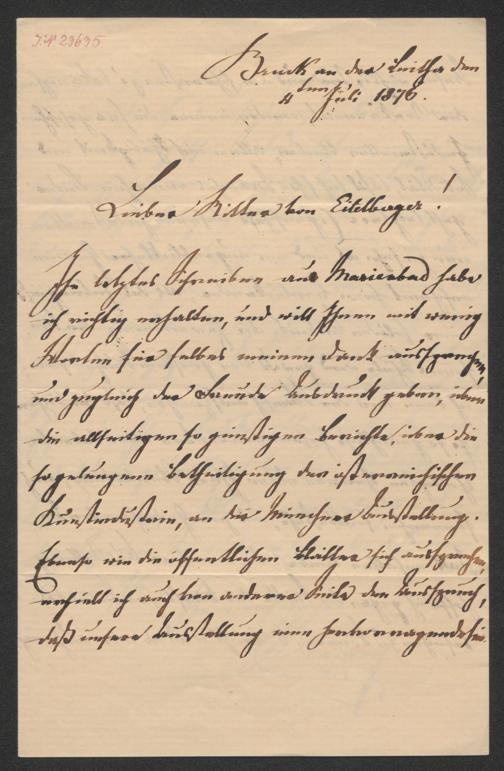 J.N 23635
Bruck an der Leitha den
4ten Juli 1876.
Lieber Ritter von Eitelberger!
Ihr letztes Schreiben aus Marienbad habe
ich richtig erhalten, und will Ihnen mit wenig
Worten für selbes meinen Dank aussprechen,
und zugleich der Freude Ausdruck geben, über
die allseitigen so günstigen Berichte, über die
so gelungene Betheiligung der österreichischen
Kunstindustrie, an der Münchner Ausstellung.
Ebenso wie die öffentlichen Blätter sich aussprechen,
erhielt ich auch von anderer Seite den Ausspruch,
daß unsere Ausstellung eine hervorragende sei